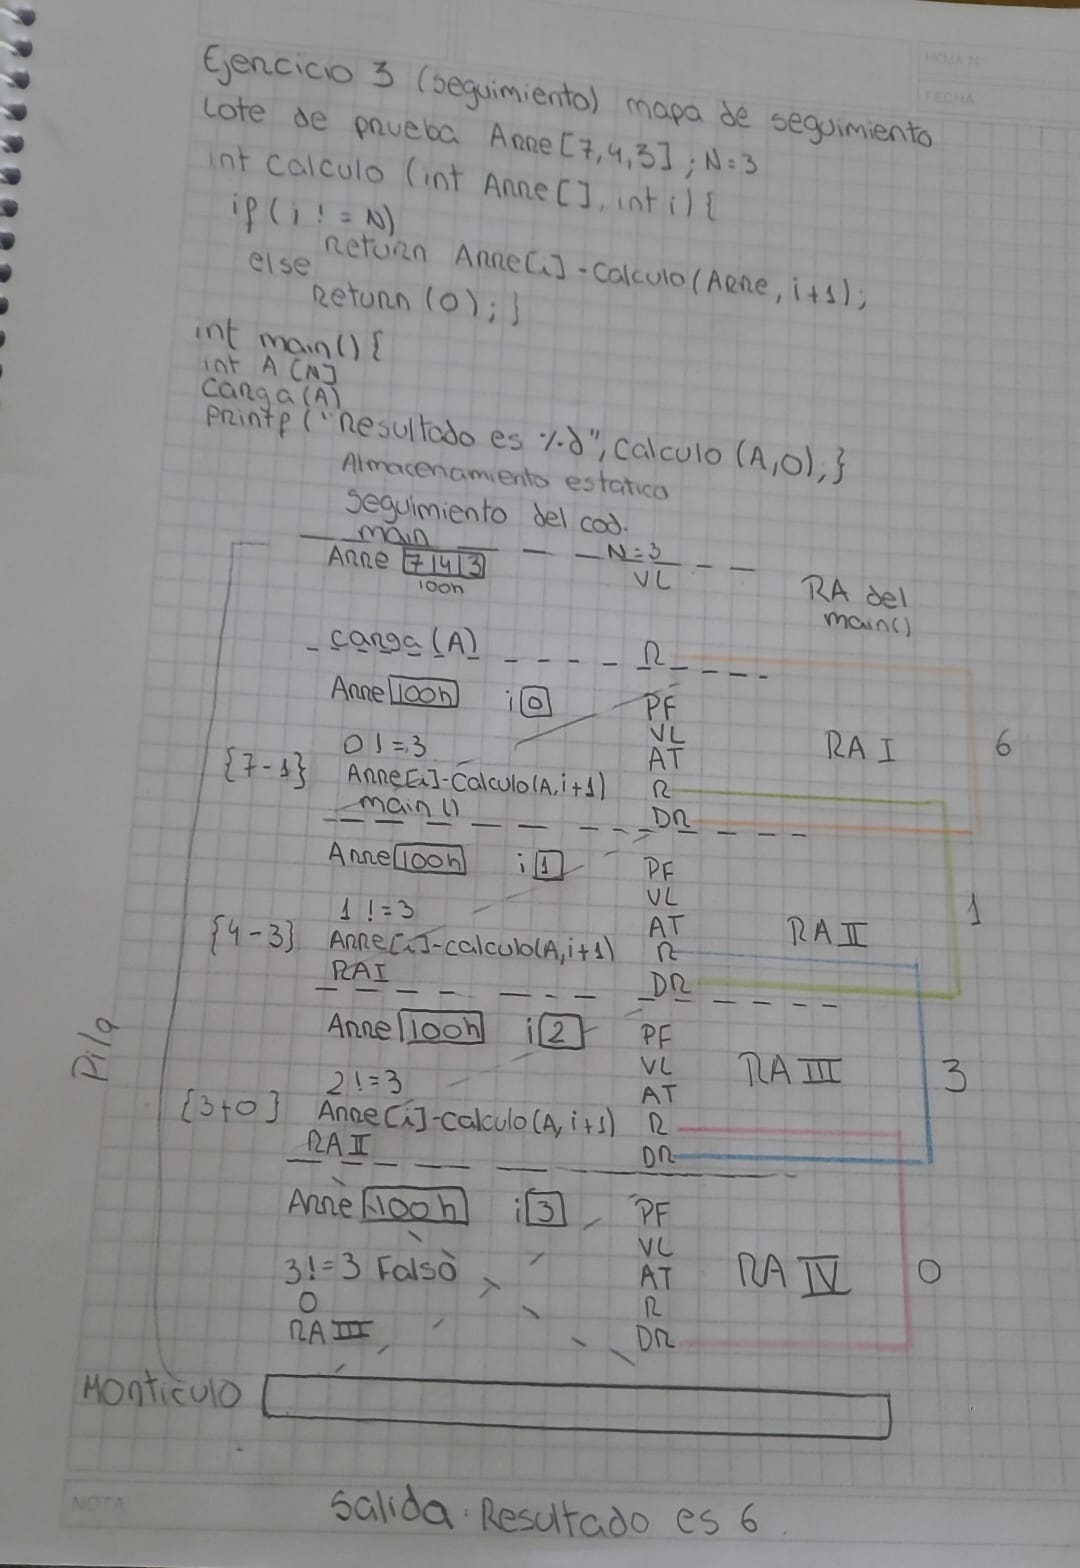 HOJA N°
FECHA
Ejercicio 3 (seguimiento) mapa de seguimiento
Lote de prueba Arre[7,4,3]; N=3
int calculo (int Arre[], int i){
if(i != N)
return Arre[i]-calculo(Arre, i+1);
else
return(0);}
int main(){
int A[N]
carga(A)
printf("Resultado es %d", calculo(A,0),}
Almacenamiento estatico
seguimiento del cod.
main
N=3
Arre 7|4|3 VL
100h
RA del
main()
carga(A) R
Arre 100h i 0 PF
VL
0!=3 AT RA I 6
{7-1} Arre[i]-calculo(A,i+1) R
main() DR
Arre 100h i 1 PF
VL
1!=3 AT RA II 1
{4-3} Arre[i]-calculo(A,i+1) R
RA I DR
Arre 100h i 2 PF
Pila
VL RA III 3
2!=3 AT
{3+0} Arre[i]-calculo(A,i+1) R
RA II DR
Arre 100h i 3 PF
VL
3!=3 Falso AT RA IV 0
0 R
RA III DR
Monticulo
NOTA
Salida. Resultado es 6.